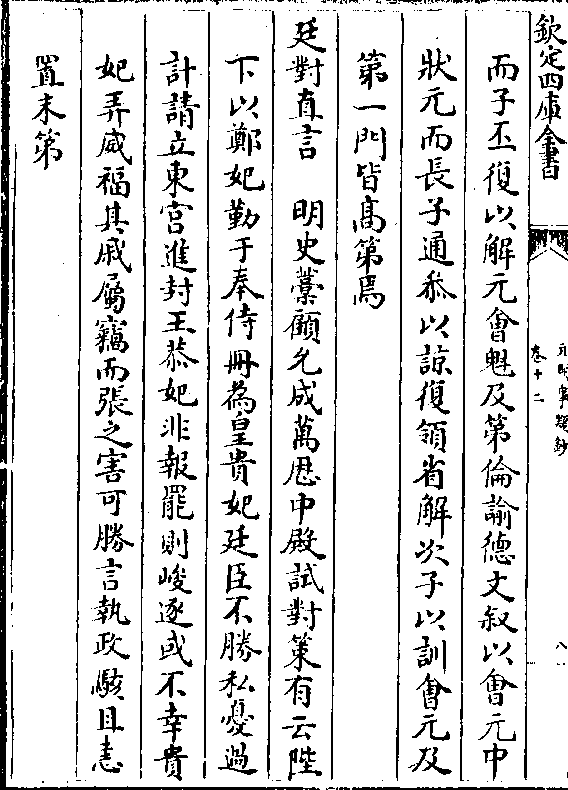 欽定四庫全書
元明事類鈔
卷十二
八
而子丕復以解元會魁及第倫諭德文叙以會元中
狀元而長子通叅以諒復領省解次子以訓會元及
第一門皆髙第焉
廷對直言　明史藁顧允成萬厯中殿試對策有云陛
下以鄭妃勤于奉侍冊為皇貴妃廷臣不勝私憂過
計請立東宮進封王恭妃非報罷則峻逐或不幸貴
妃弄威福其戚屬竊而張之害可勝言執政駭且恚
置末第